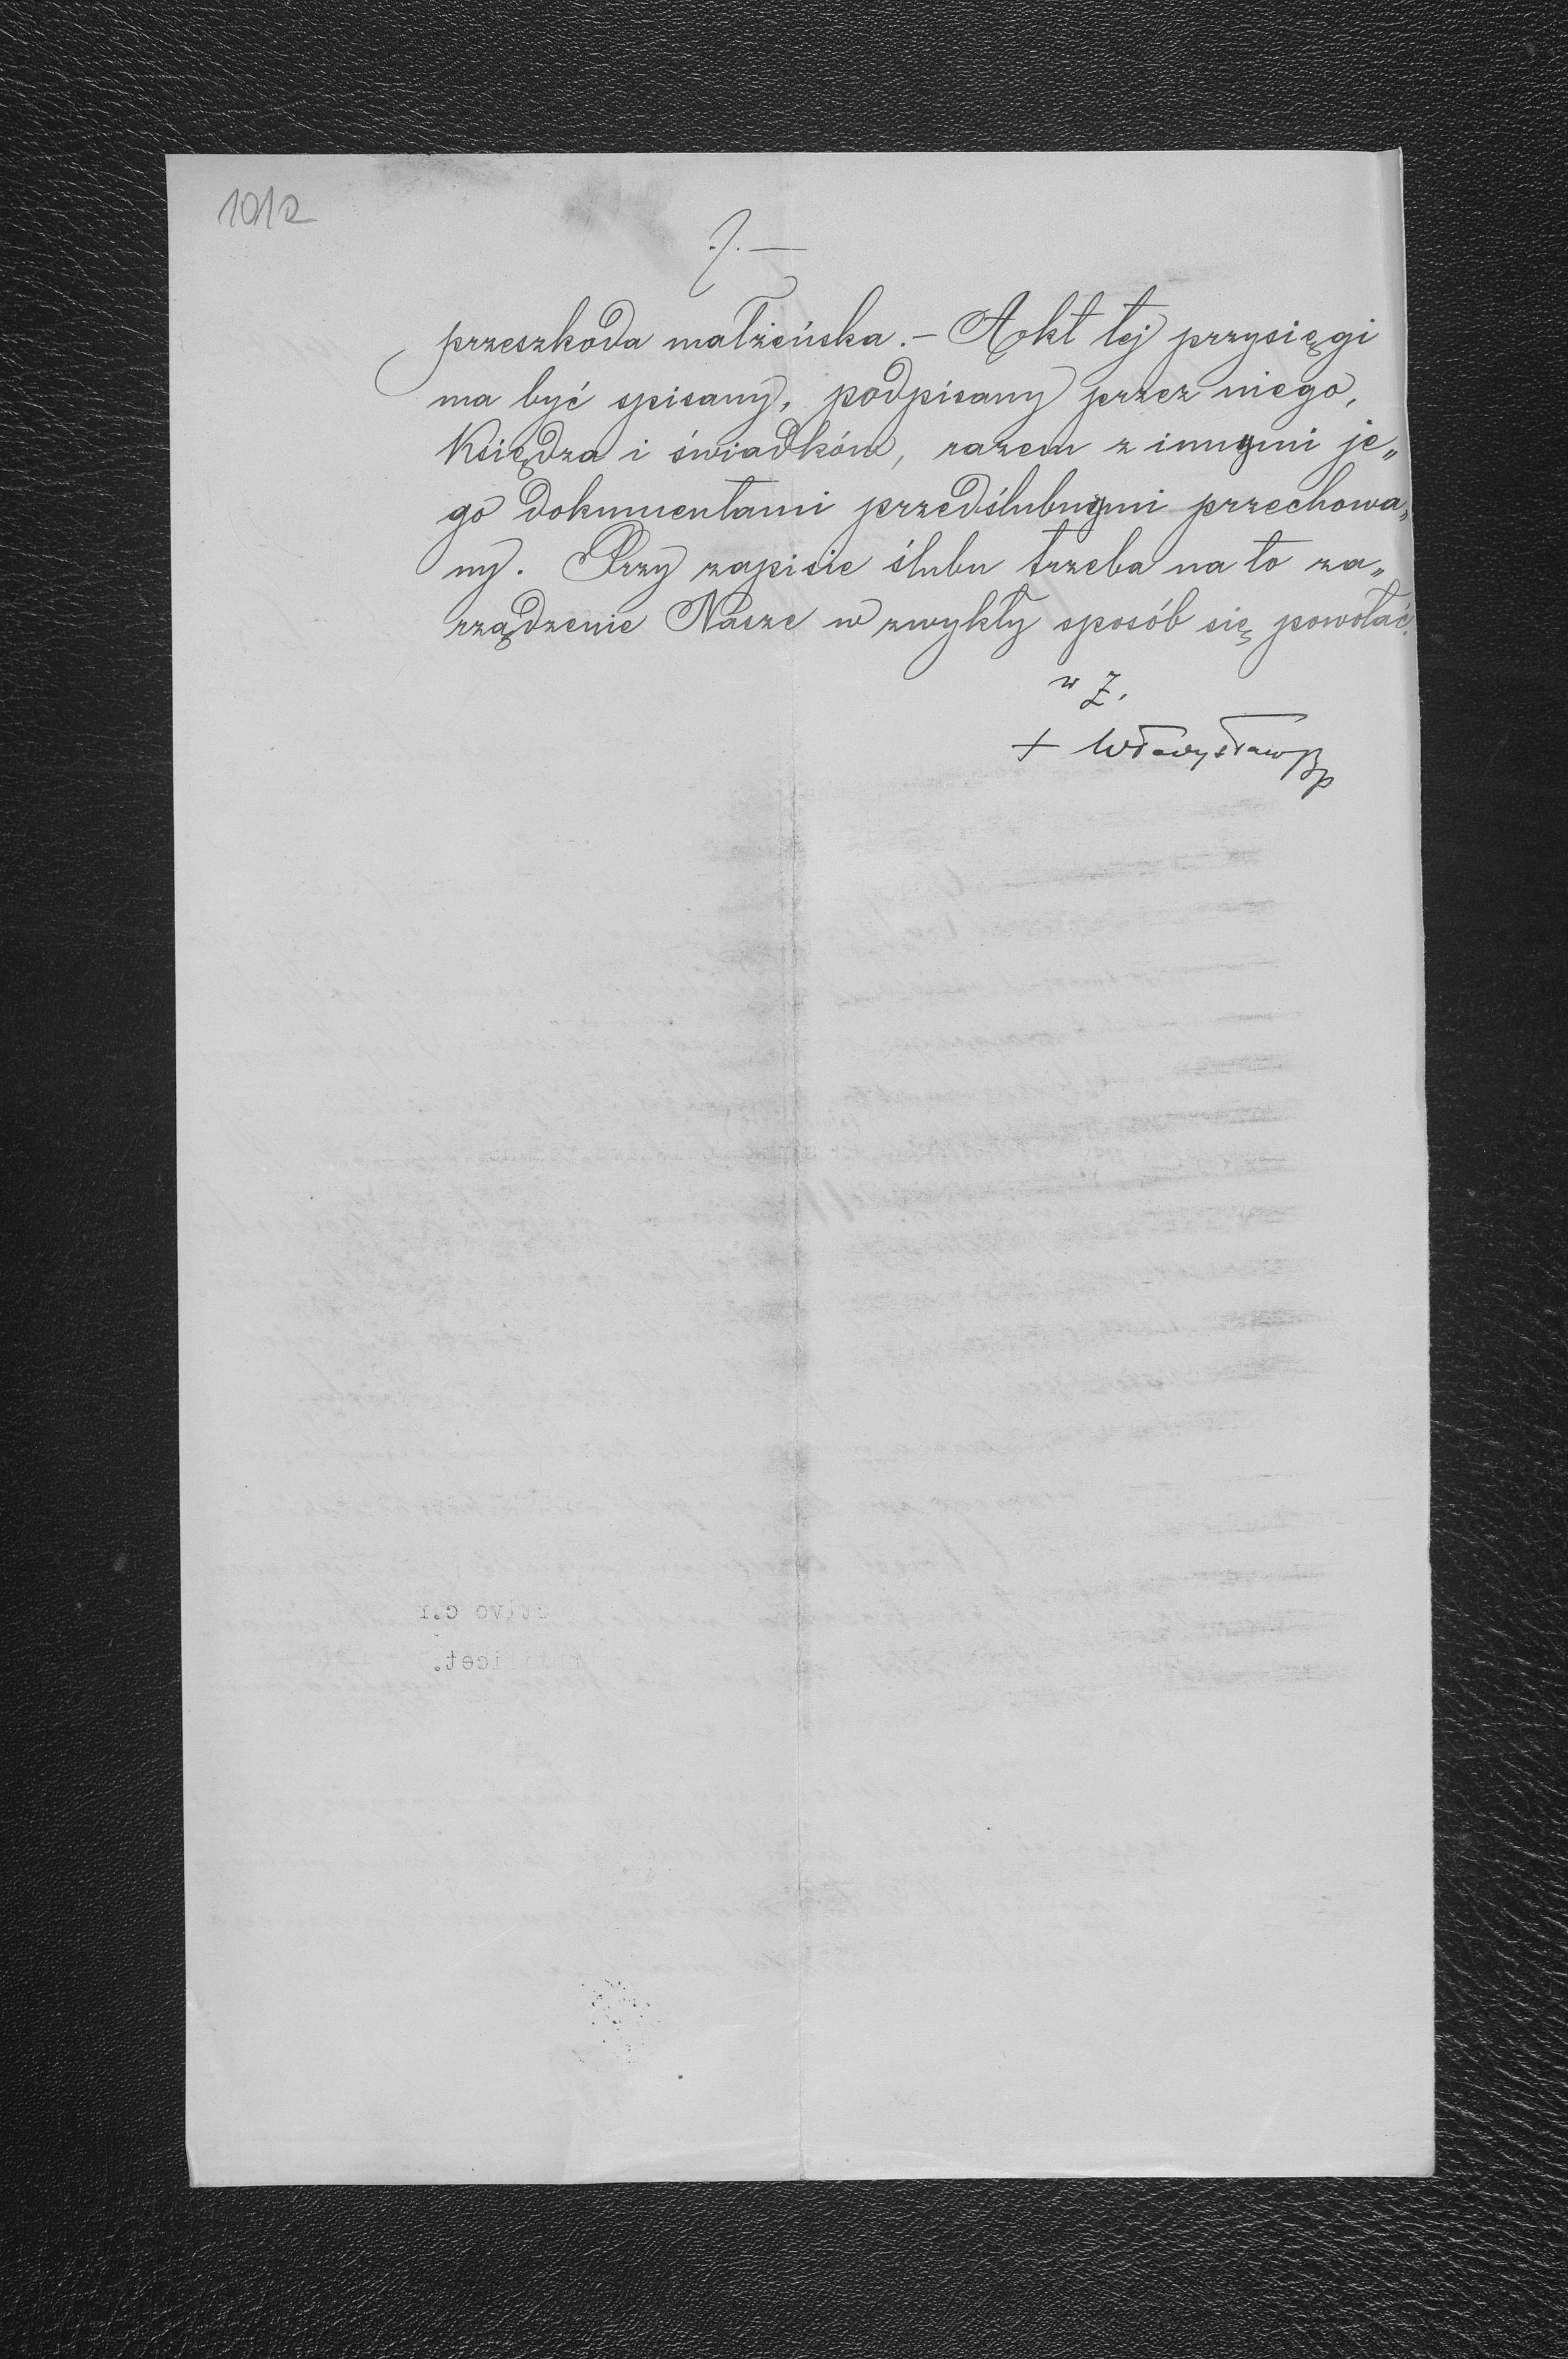 1012
./. —
przeszkoda małżeńska. — Akt tej przysięgi
ma być spisany, podpisany przez niego,
Księdza i świadków, razem z innymi je„
go dokumentami przedślubnymi przechowa„
ny. Przy zapisie ślubu trzeba na to za„
rządzenie Nasze w zwykły sposób się powołać.
w Z.
+ Władysław Bp